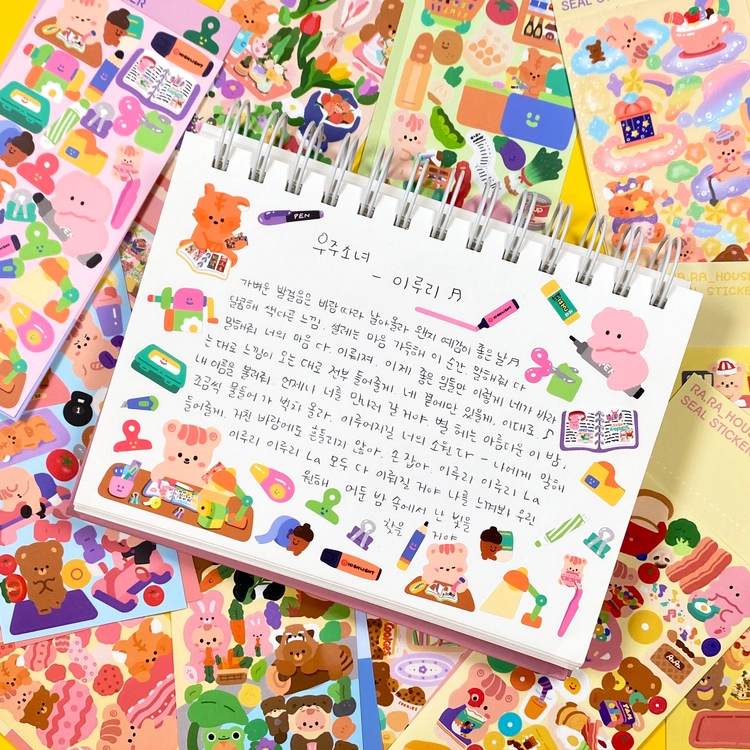 SEAL STICKER
HIGHLIGHT
PEN
우주소녀
- 이루리 ♬
가벼운 발걸음은 바람 따라 날아올라 왠지 예감이 좋은 날♬
달콤해 색다른 느낌. 설레는 마음 가득해 이 순간 말해줘 다
말해줘 너의 마음 다. 이뤄져. 이제 좋은 일들만 이렇게 네가 바라
는 대로 느낌이 오는 대로 전부 들어줄게. 네 곁에만 있을게. 이대로 ♪
내 이름을 불러줘. 언제나 너를 만나러 갈 거야. 별 헤는 아름다운 이 밤,
조금씩 물들어 가 벅차 올라. 이루어지길 너의 소원 다 - 나에게 말해
들어줄게. 거친 바람에도 흔들리지 않아. 손 잡아. 이루리 이루리 La
이루리 이루리 La 모두 다 이뤄질 거야 나를 느껴봐 우린
원해 어둔 밤 속에서 난 빛을
찾을 거야
HIGHLIGHT
RA.RA_HOUSE
SEAL STICKER
RA.RA_HOUSE
SEAL STICKER